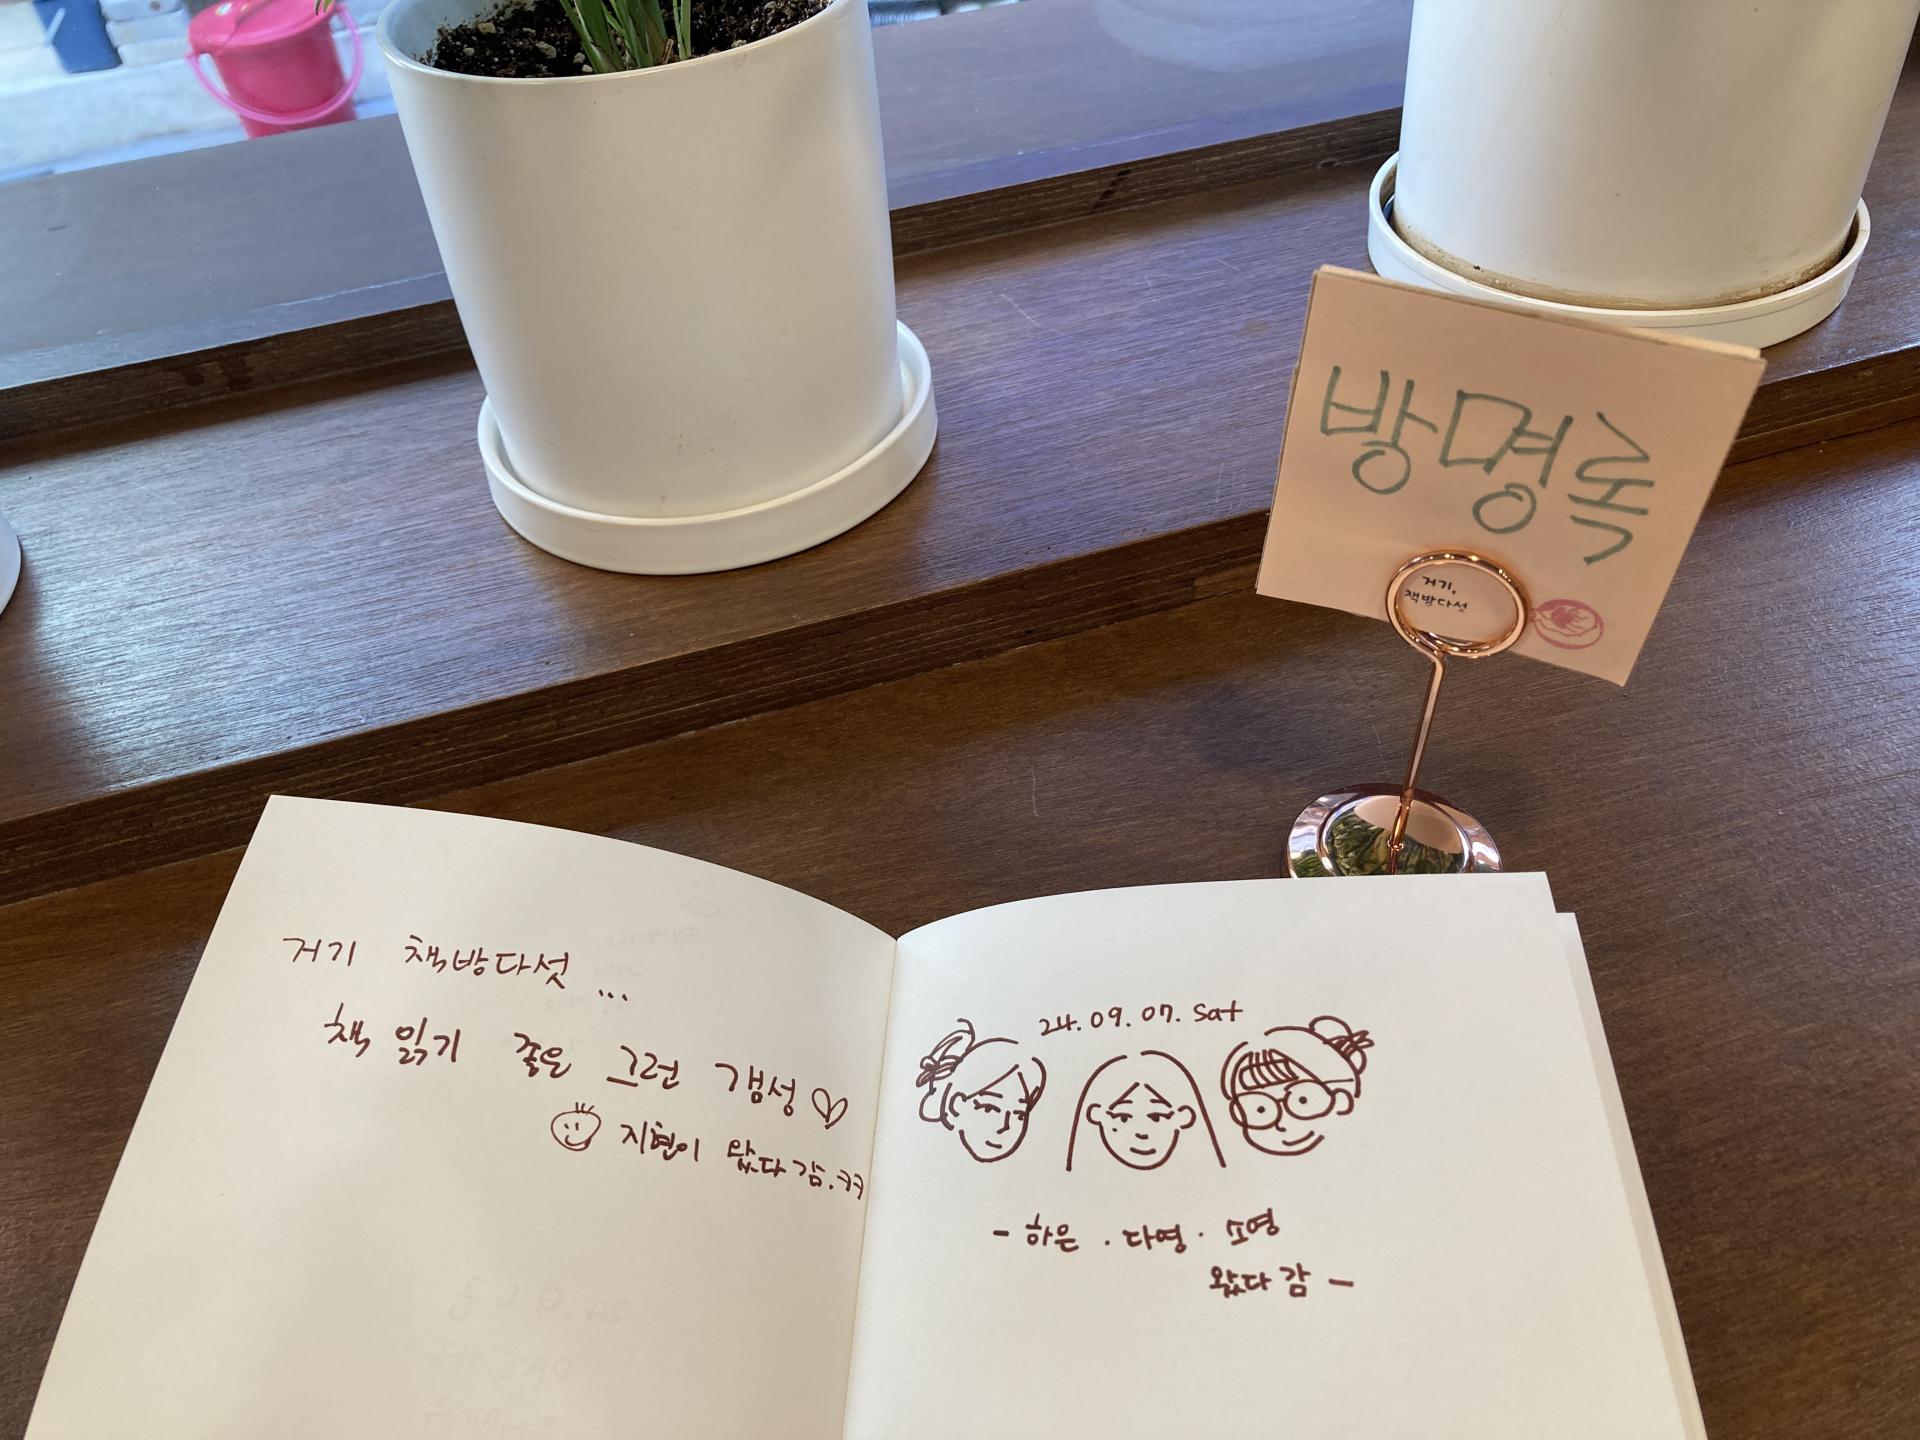 방명록
거기,
책방다섯
거기 책방다섯...
책 읽기 좋은 그런 갬성♡
지현이 왔다 감.ㅋㅋ
24.09.07. Sat
- 하은 · 다영 · 소영
왔다 감 -